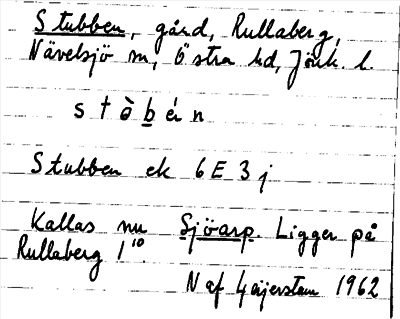 Stubben, gård, Rullaberg,
Nävelsjö sn, Östra hd, Jönk. l.
stòbén
Stubben ek 6E3j
Kallas nu Sjöarp. Ligger på
Rullaberg 1¹⁰.
N af Geijerstam 1962